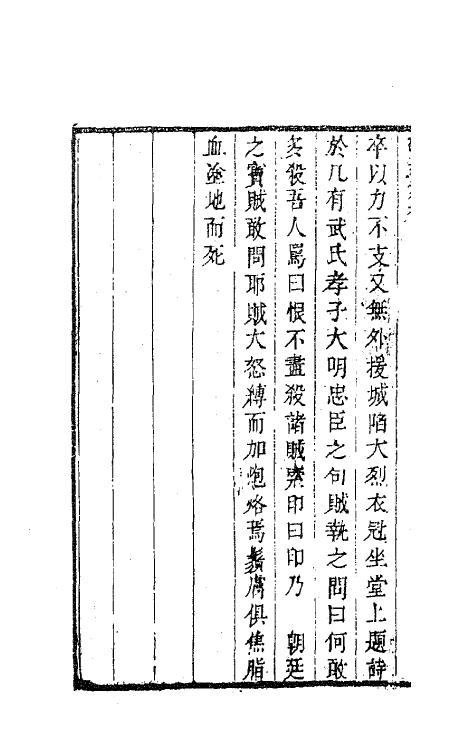 卒以力不支又無外援城陷大烈衣冠坐堂上題詩
於几有武氏孝子大明忠臣之句賊執之問曰何敢
多殺吾人罵曰恨不盡殺諸賊索印曰印乃　朝廷
之寶賊敢問耶賊大怒縛而加炮烙焉鬚膚俱焦脂
血塗地而死